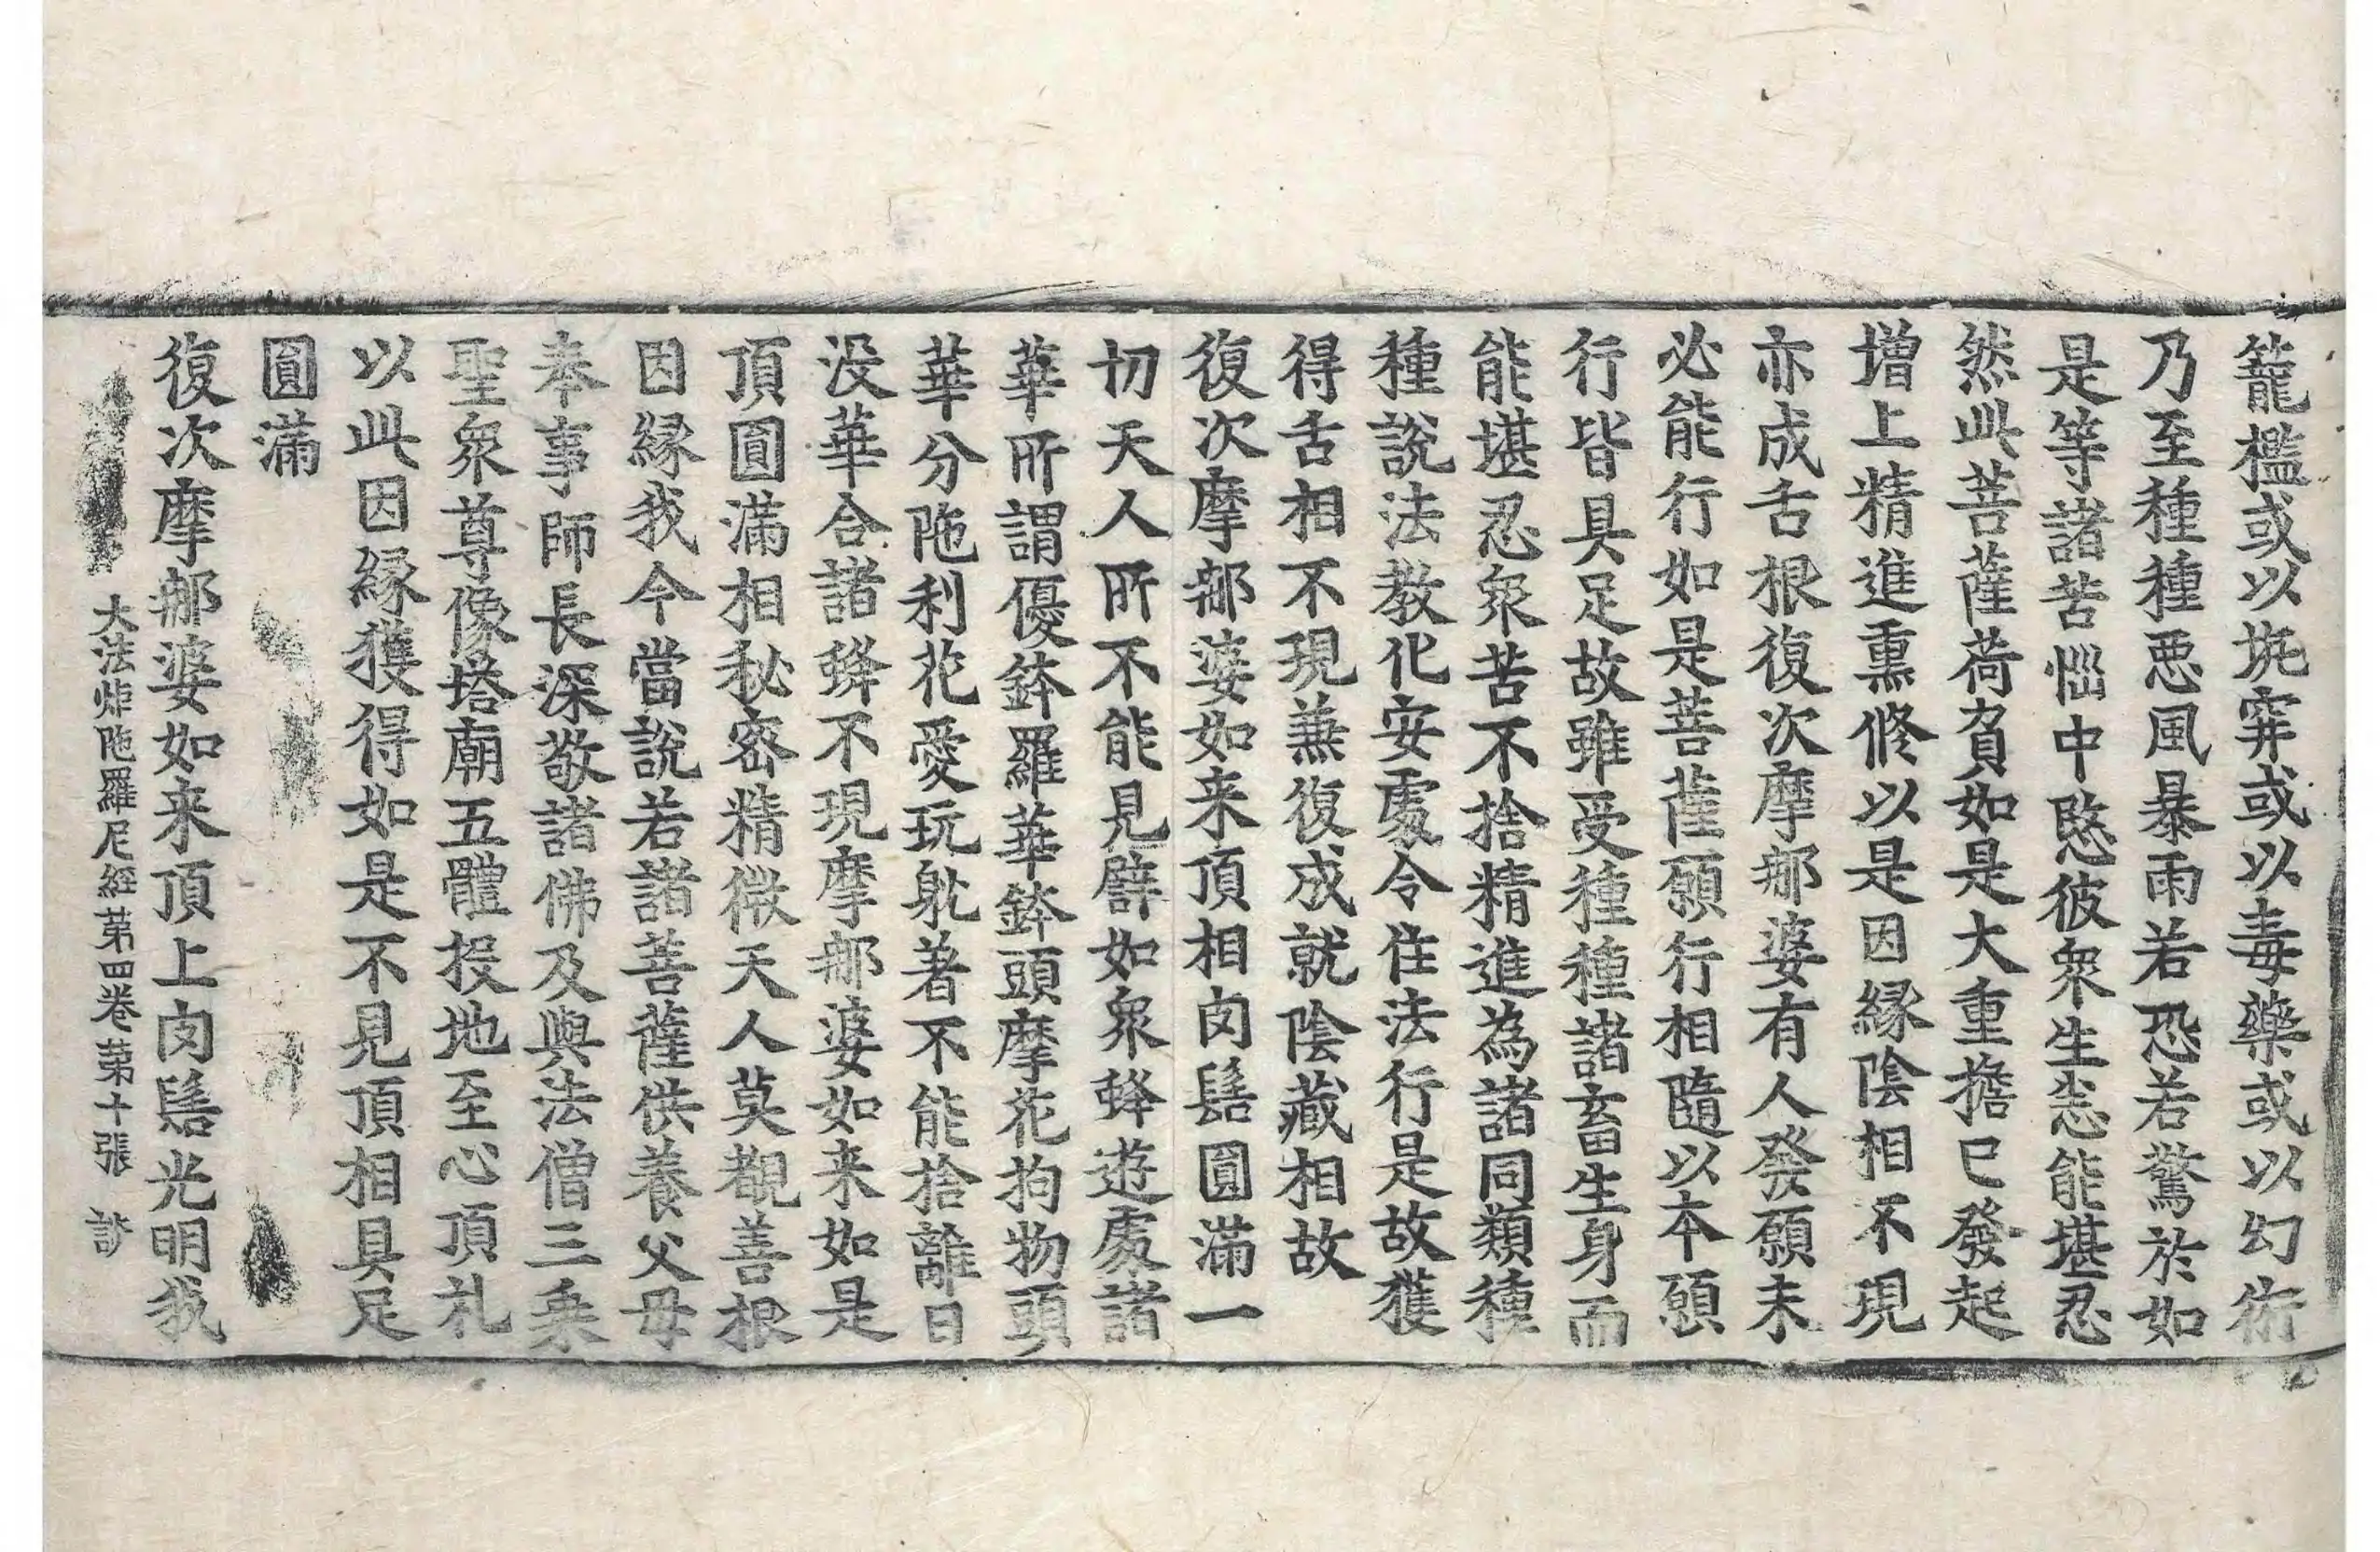 籠檻或以坑穽或以毒藥或以幻術
乃至種種惡風暴雨若恐若驚於如
是等諸苦惱中愍彼衆生悉能堪忍
然此菩薩荷負如是大重擔已發起
增上精進熏修以是因緣陰相不現
亦成舌根復次摩那婆有人發願未
必能行如是菩薩願行相隨以本願
行皆具足故雖受種種諸畜生身而
能堪忍衆苦不捨精進為諸同類種
種說法教化安處令住法行是故獲
得舌相不現兼復成就陰藏相故
復次摩那婆如来頂相肉髻圓滿一
切天人所不能見譬如衆蜂遊處諸
華所謂優鉢羅華鉢頭摩花拘物頭
華分陁利花愛玩躭著不能捨離日
没華合諸蜂不現摩那婆如来如是
頂圓滿相秘密精微天人莫覩善根
因緣我今當說若諸菩薩供養父母
奉事師長深敬諸佛及與法僧三乘
聖衆尊像塔廟五體投地至心頂礼
以此因緣獲得如是不見頂相具足
圓滿
復次摩那婆如来頂上肉髻光明我
大法炬陁羅尼經第四卷第十張